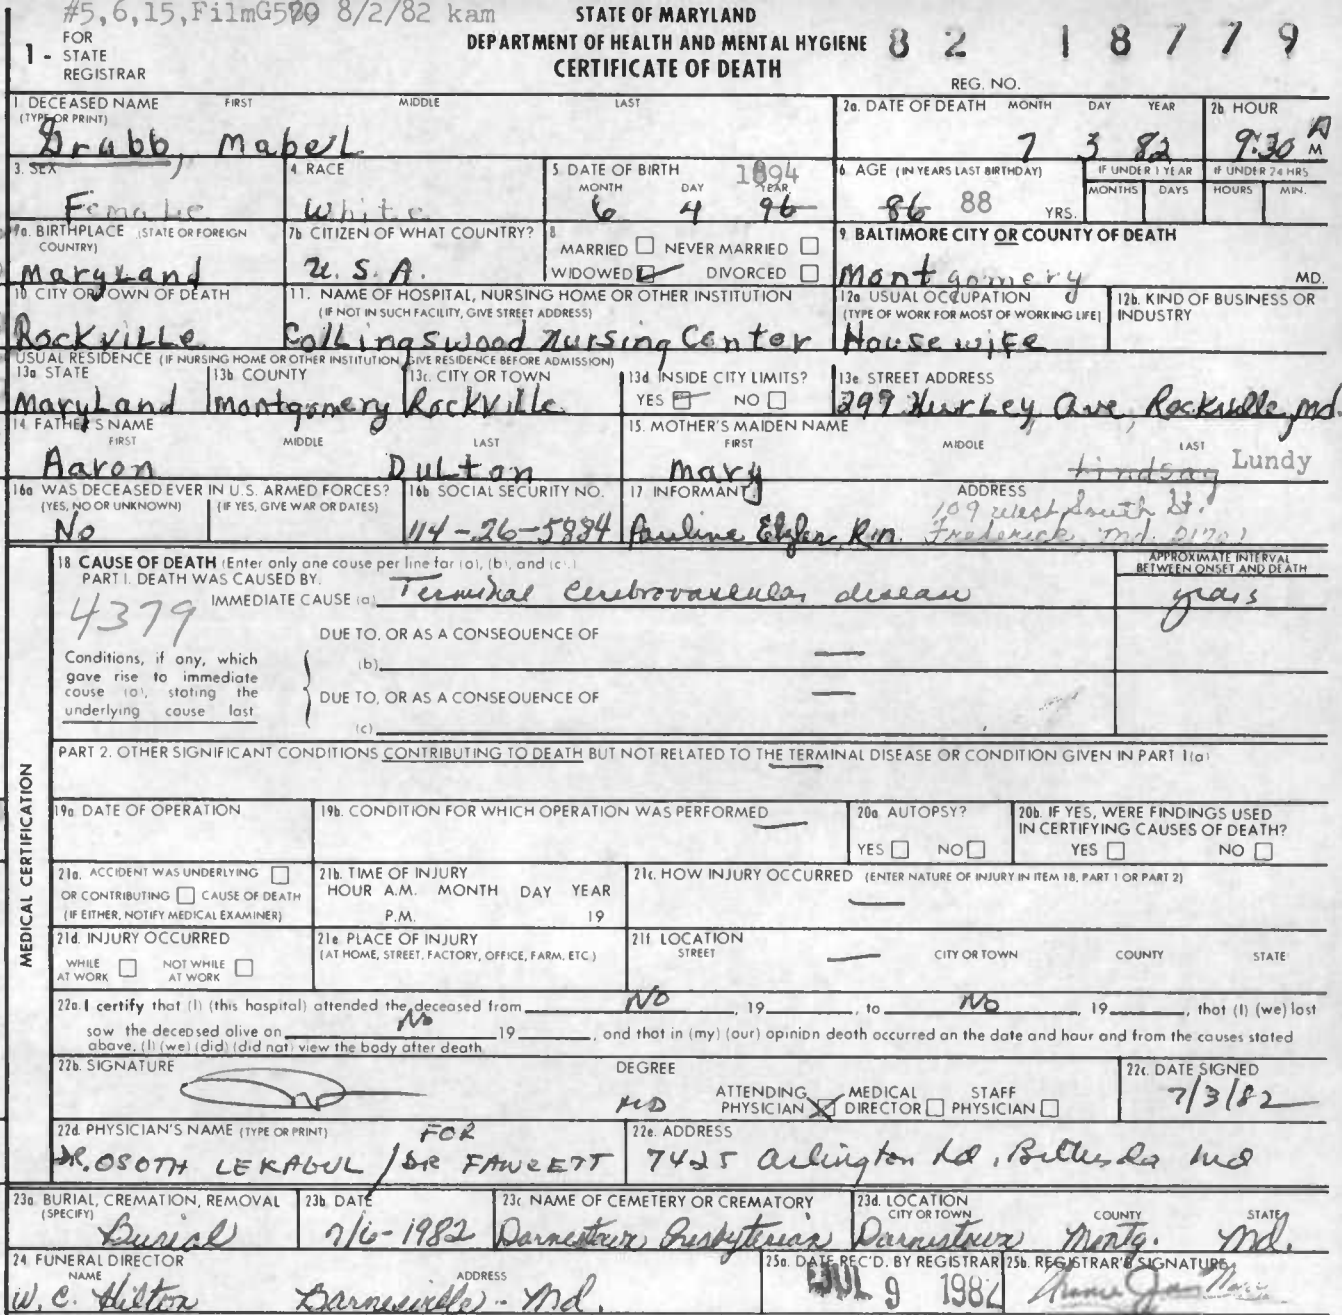 #5,6,15,FilmG570 8/2/82 kam
STATE OF MARYLAND
DEPARTMENT OF HEALTH AND MENTAL HYGIENE
CERTIFICATE OF DEATH
82 18779
REG. NO.
1 - FOR STATE REGISTRAR
1 DECEASED NAME FIRST MIDDLE LAST
(TYPE OR PRINT)
Grabb, Mabel
2a. DATE OF DEATH MONTH DAY YEAR
7 3 82
2b. HOUR
9:30 A M
3. SEX
Female
4. RACE
White
5. DATE OF BIRTH
MONTH DAY YEAR
1894
6 4 96
6 AGE (IN YEARS LAST BIRTHDAY)
86 88 YRS.
IF UNDER 1 YEAR
MONTHS DAYS
IF UNDER 24 HRS
HOURS MIN.
7a. BIRTHPLACE (STATE OR FOREIGN COUNTRY)
Maryland
7b CITIZEN OF WHAT COUNTRY?
U.S.A.
8
MARRIED NEVER MARRIED
WIDOWED DIVORCED
9. BALTIMORE CITY OR COUNTY OF DEATH
Montgomery MD.
10 CITY OR TOWN OF DEATH
Rockville
11. NAME OF HOSPITAL, NURSING HOME OR OTHER INSTITUTION
(IF NOT IN SUCH FACILITY, GIVE STREET ADDRESS)
Collingswood Nursing Center
12a USUAL OCCUPATION
(TYPE OF WORK FOR MOST OF WORKING LIFE)
Housewife
12b. KIND OF BUSINESS OR INDUSTRY
USUAL RESIDENCE (IF NURSING HOME OR OTHER INSTITUTION, GIVE RESIDENCE BEFORE ADMISSION)
13a STATE
Maryland
13b COUNTY
Montgomery
13c. CITY OR TOWN
Rockville
13d INSIDE CITY LIMITS?
YES NO
13e STREET ADDRESS
299 Hurley Ave, Rockville, Md.
14 FATHER'S NAME
FIRST MIDDLE LAST
Aaron Dulton
15. MOTHER'S MAIDEN NAME
FIRST MIDDLE LAST
Mary Lindsay Lundy
16a WAS DECEASED EVER IN U.S. ARMED FORCES?
(YES, NO OR UNKNOWN) (IF YES, GIVE WAR OR DATES)
No
16b SOCIAL SECURITY NO.
114-26-5884
17 INFORMANT ADDRESS
Pauline R.n.
109 West South St.
Frederick, Md. 21701
MEDICAL CERTIFICATION
18 CAUSE OF DEATH (Enter only one cause per line for (a), (b), and (c).)
APPROXIMATE INTERVAL BETWEEN ONSET AND DEATH
PART I. DEATH WAS CAUSED BY.
IMMEDIATE CAUSE (a) Terminal cerebrovascular disease
years
4379
DUE TO, OR AS A CONSEQUENCE OF
(b) —
Conditions, if any, which gave rise to immediate cause (a), stating the underlying cause last
DUE TO, OR AS A CONSEQUENCE OF
(c) —
PART 2. OTHER SIGNIFICANT CONDITIONS CONTRIBUTING TO DEATH BUT NOT RELATED TO THE TERMINAL DISEASE OR CONDITION GIVEN IN PART 1(a)
—
19a DATE OF OPERATION
19b. CONDITION FOR WHICH OPERATION WAS PERFORMED
—
20a AUTOPSY?
YES NO
20b. IF YES, WERE FINDINGS USED IN CERTIFYING CAUSES OF DEATH?
YES NO
21a. ACCIDENT WAS UNDERLYING
OR CONTRIBUTING CAUSE OF DEATH
(IF EITHER, NOTIFY MEDICAL EXAMINER)
21b. TIME OF INJURY
HOUR A.M. MONTH DAY YEAR
P.M. 19
21c. HOW INJURY OCCURRED (ENTER NATURE OF INJURY IN ITEM 18, PART 1 OR PART 2)
—
21d. INJURY OCCURRED
WHILE AT WORK NOT WHILE AT WORK
21e PLACE OF INJURY
(AT HOME, STREET, FACTORY, OFFICE, FARM, ETC.)
21f. LOCATION
STREET CITY OR TOWN COUNTY STATE
—
22a. I certify that (I) (this hospital) attended the deceased from No, 19, to No, 19, that (I) (we) last
saw the deceased alive on No 19, and that in (my) (our) opinion death occurred on the date and hour and from the causes stated
above, (I) (we) (did) (did not) view the body after death
22b. SIGNATURE
DEGREE
MD
ATTENDING PHYSICIAN MEDICAL DIRECTOR STAFF PHYSICIAN
22c. DATE SIGNED
7/3/82
22d. PHYSICIAN'S NAME (TYPE OR PRINT)
DR. OSOTH LEKAGUL / FOR DR FAWCETT
22e. ADDRESS
7425 Arlington Rd, Bethesda Md
23a. BURIAL, CREMATION, REMOVAL
(SPECIFY)
Burial
23b. DATE
7/6-1982
23c NAME OF CEMETERY OR CREMATORY
Darnestown Presbyterian
23d. LOCATION
CITY OR TOWN COUNTY STATE
Darnestown Montg. Md.
24 FUNERAL DIRECTOR
NAME ADDRESS
W. C. Hilton Barnesville - Md.
25a. DATE REC'D. BY REGISTRAR
JUL 9 1982
25b. REGISTRAR'S SIGNATURE